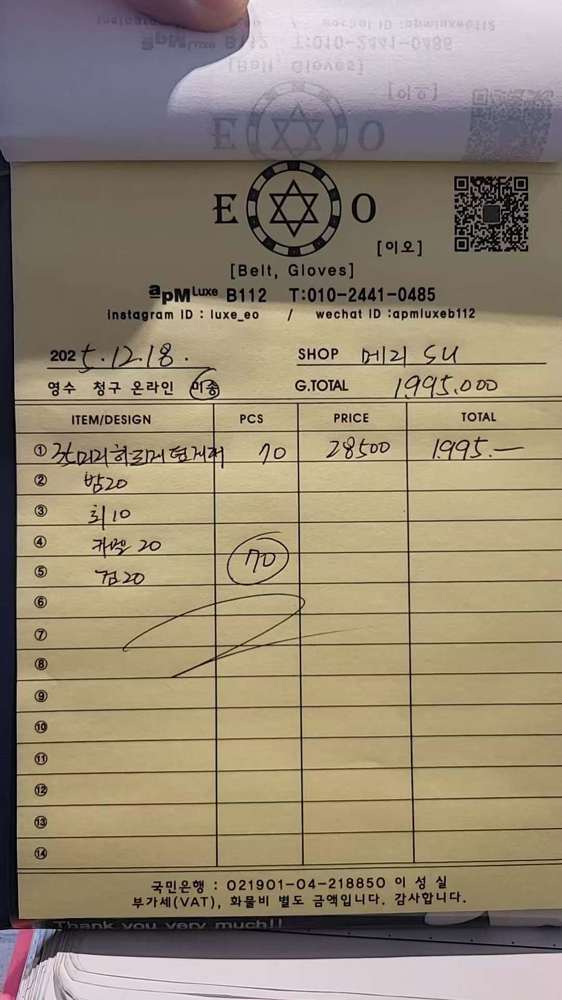 E O
[이오]
[Belt, Gloves]
apM Luxe B112 T:010-2441-0485
instagram ID : luxe_eo / wechat ID :apmluxeb112
2025.12.18. SHOP 메리 SU
영수 청구 온라인 미송 G.TOTAL 1,995,000
ITEM/DESIGN PCS PRICE TOTAL
① 70 28500 1995.—
② 밤20
③ 회10
④ 카멜 20
⑤ 검20 70
⑥
⑦
⑧
⑨
⑩
⑪
⑫
⑬
⑭
국민은행 : 021901-04-218850 이 성 실
부가세(VAT), 화물비 별도 금액입니다. 감사합니다.
Thank you very much!!